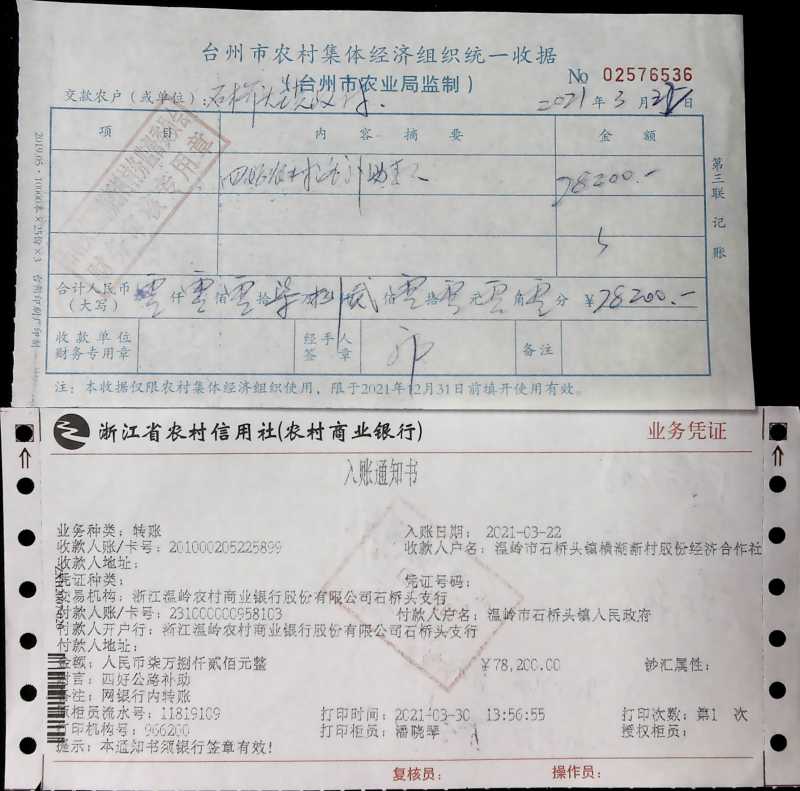 台州市农村集体经济组织统一收据
(台州市农业局监制)
No 02576536
交款农户(或单位):石桥头镇政府
2021年3月25日
项 目 内 容 摘 要 金 额
四好农村路补助款 78200.-
合计人民币(大写) 零仟零佰零拾柒万捌仟贰佰零拾零元零角零分 ¥78200.-
收款单位财务专用章
经手人签章
备注
注:本收据仅限农村集体经济组织使用,限于2021年12月31日前填开使用有效。
第三联 记账
2019.05·10000本×25份×3 台州印刷厂印制
财务专用章
浙江省农村信用社(农村商业银行) 业务凭证
入账通知书
业务种类:转账 入账日期: 2021-03-22
收款人账/卡号:201000205225899 收款人户名:温岭市石桥头镇横湖新村股份经济合作社
收款人地址:
凭证种类: 凭证号码:
交易机构:浙江温岭农村商业银行股份有限公司石桥头支行
付款人账/卡号:231000000958103 付款人户名:温岭市石桥头镇人民政府
付款人开户行:浙江温岭农村商业银行股份有限公司石桥头支行
付款人地址:
金额:人民币柒万捌仟贰佰元整 ¥78,200.00 钞汇属性:
附言:四好公路补助
备注:网银行内转账
原柜员流水号:11819109 打印时间:2021-03-30 13:56:55 打印次数:第1 次
打印机构号:966200 打印柜员:潘晓琴 授权柜员:
提示:本通知书须银行签章有效!
复核员: 操作员: